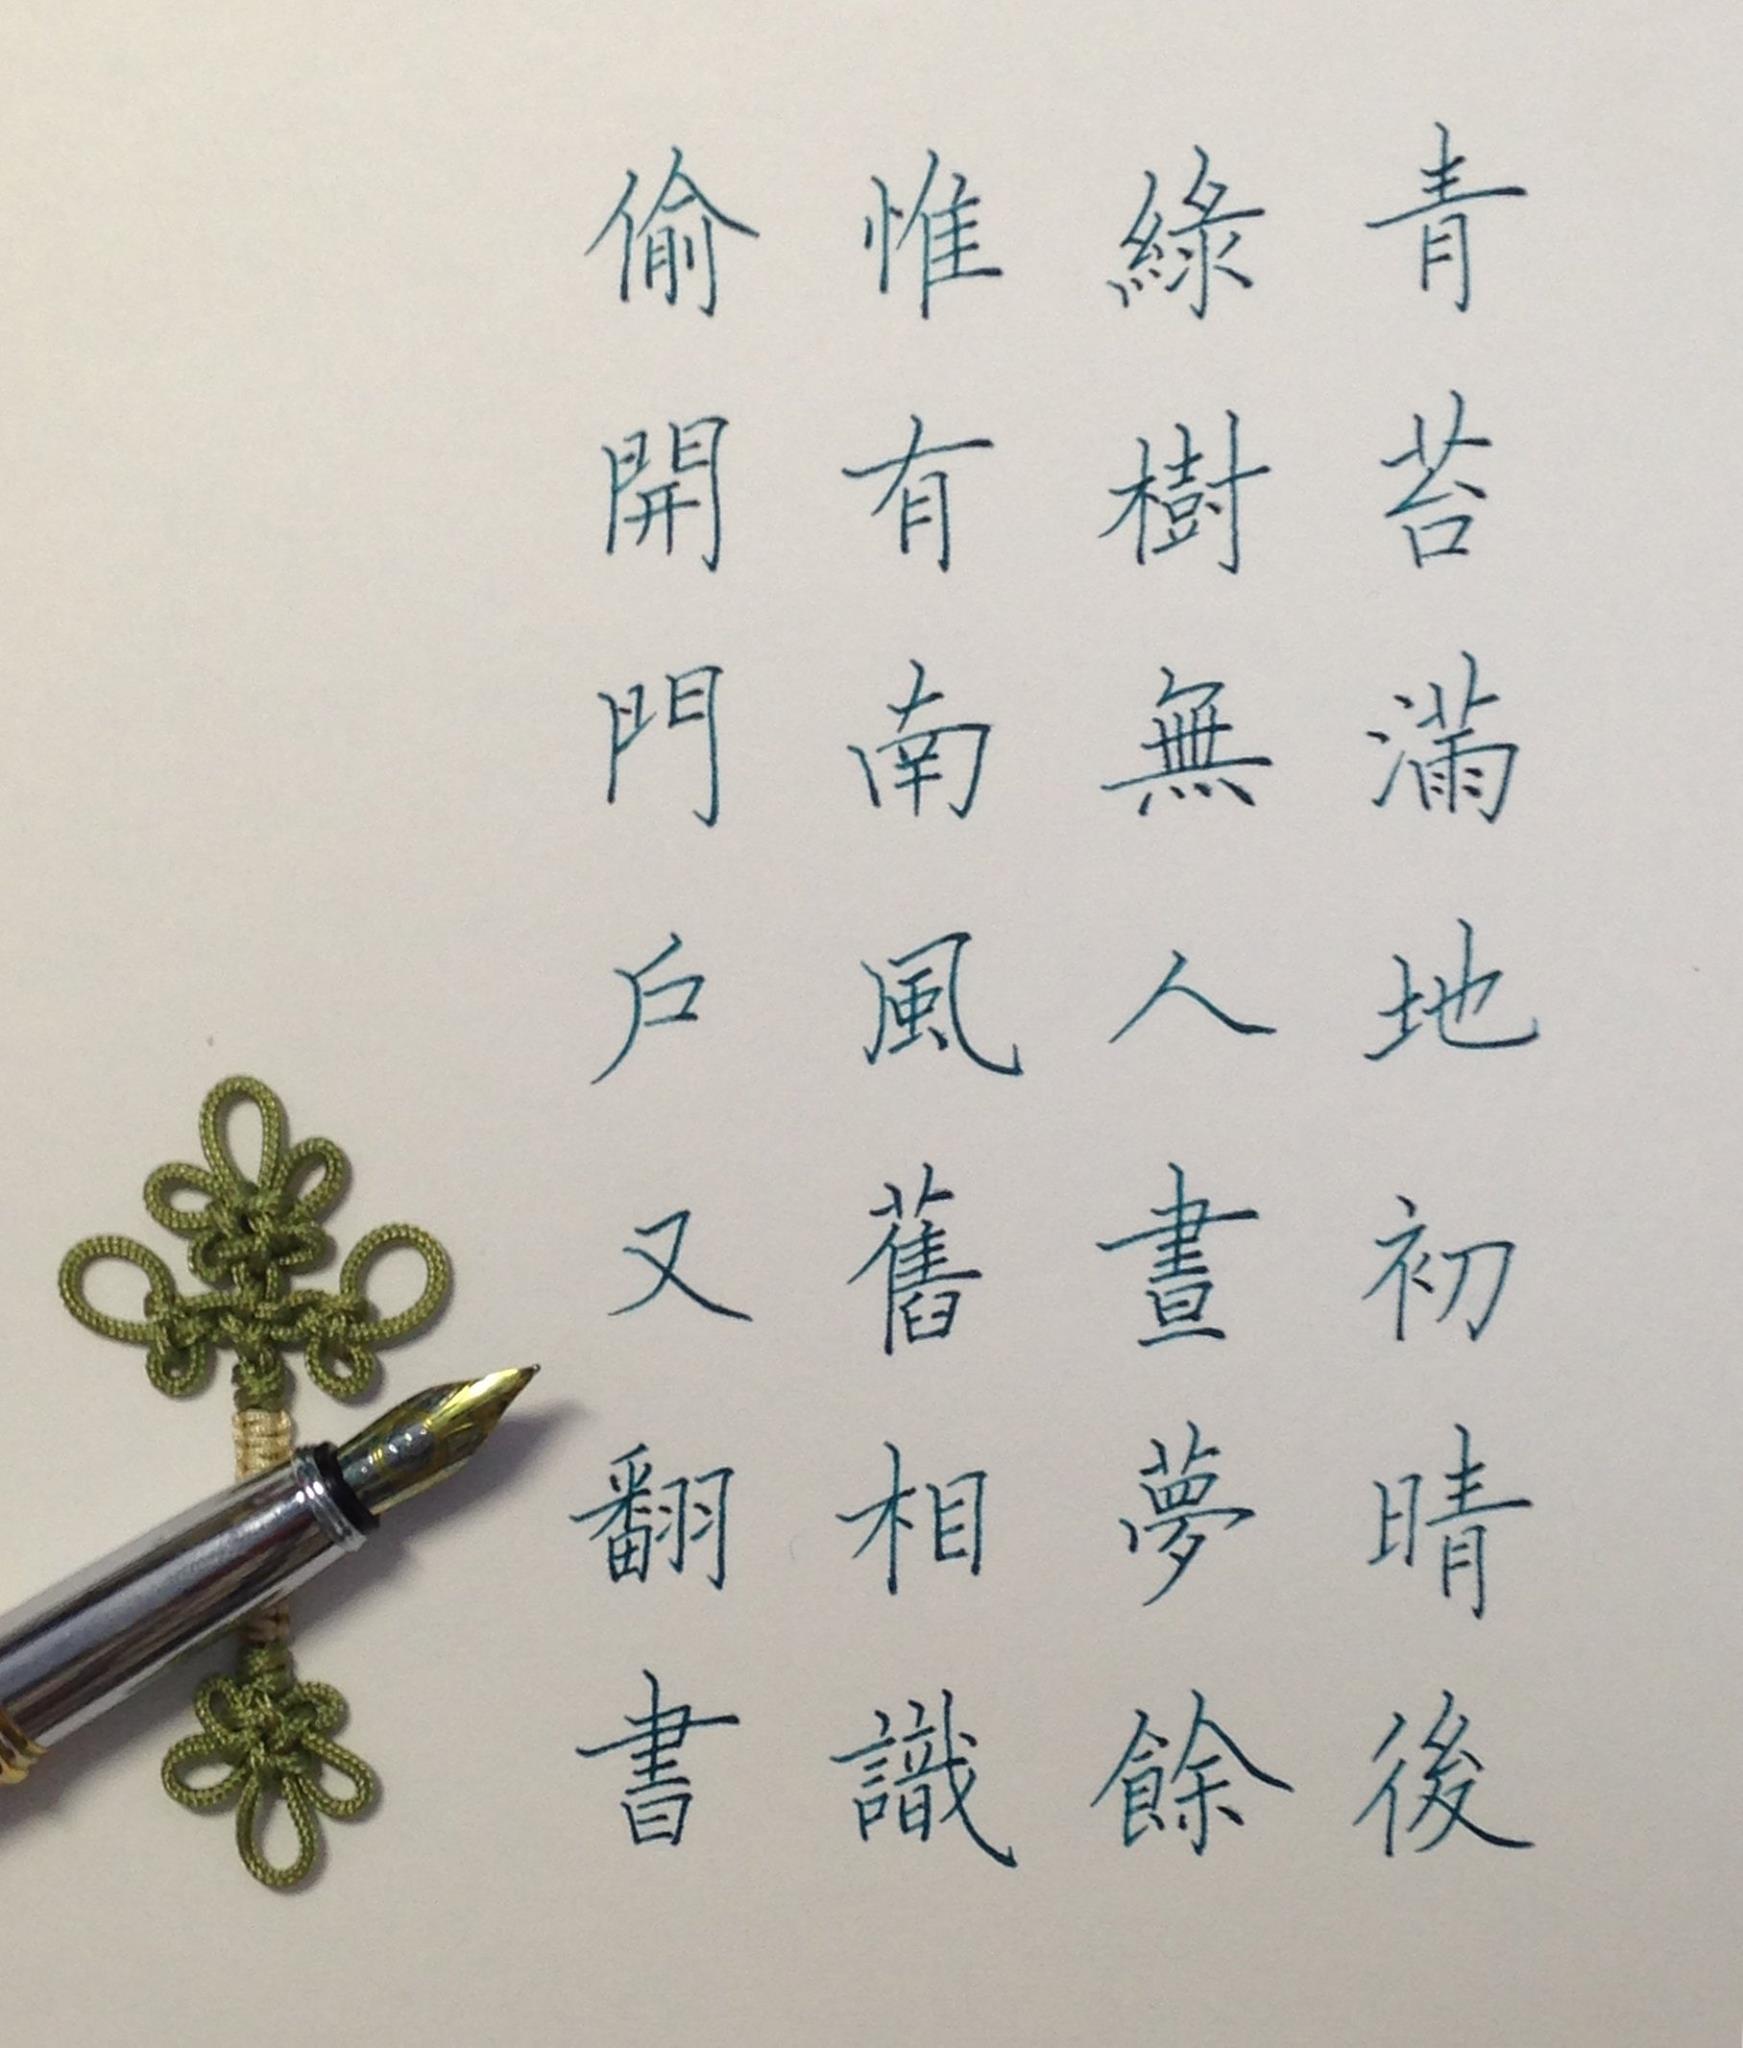 青苔滿地初晴後
綠樹無人晝夢餘
惟有南風舊相識
偷開門戶又翻書